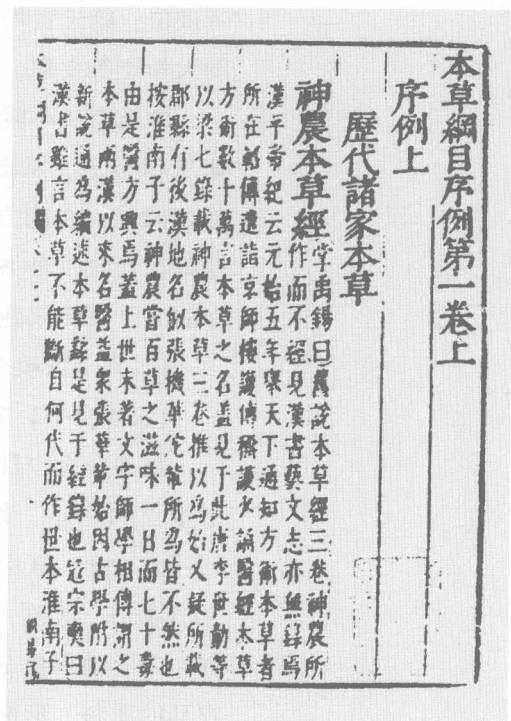 本草綱目序例第一卷上
序例上
歷代諸家本草
神農本草經 掌禹錫曰舊說本草經三卷神農所
作而不經見漢書藝文志亦無錄焉
漢平帝紀云元始五年舉天下通知方術本草者
所在軺傳遣詣京師樓護傳稱護少誦醫經本草
方術數十萬言本草之名蓋見于此唐李世勣等
以梁七錄載神農本草三卷推以爲始又疑所載
郡縣有後漢地名似張機華佗輩所爲皆不然也
按淮南子云神農嘗百草之滋味一日而七十毒
由是醫方興焉蓋上世未著文字師學相傳謂之
本草兩漢以來名醫益眾張華輩始因古學附以
新說通爲編述本草繇是見于經錄也寇宗奭曰
漢書雖言本草不能斷自何代而作世本淮南子